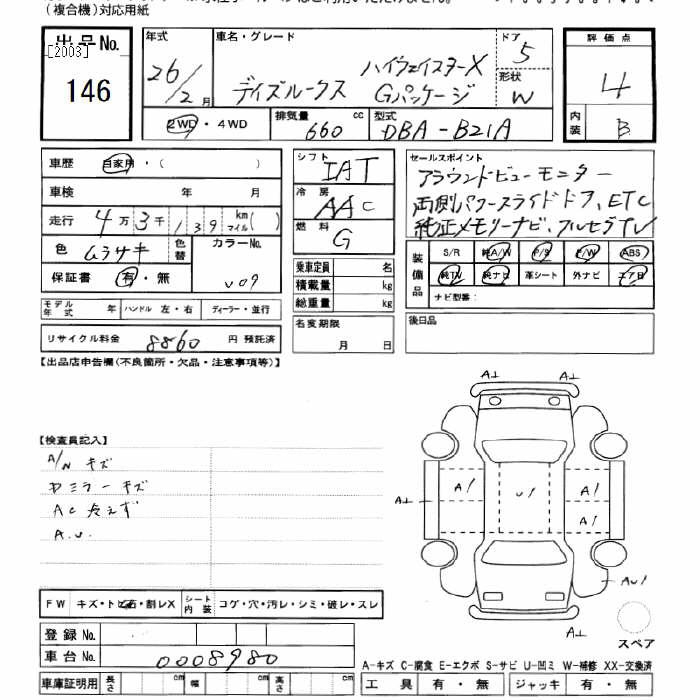 (複合機)対応用紙
出品No. [2003]
146
年式 26/2月
車名・グレード デイズルークス ハイウェイスターX Gパッケージ
ドア 5
形状 W
評価点 4
内装 B
2WD・4WD
排気量 660 cc
型式 DBA-B21A
車歴 自家用・( )
車検 年 月
走行 4万3千139 km マイル( )
色 ムラサキ 色替 カラーNo. V09
保証書 有・無
モデル年式 年 ハンドル 左・右 ディーラー・並行
リサイクル料金 8860 円 預託済
シフト IAT
冷房 AAC
燃料 G
乗車定員 名
積載量 kg
総重量 kg
名変期限 月 日
セールスポイント
アラウンドビューモニター
両側パワースライドドア、ETC
純正メモリーナビ、フルセグTV
装備品 S/R 純A/W P/S P/W ABS
純TV 純ナビ 革シート 外ナビ エアB
ナビ型番:
後日品
【出品店申告欄(不良箇所・欠品・注意事項等)】
【検査員記入】
A/N キズ
Dミラーキズ
AC冷えず
A.U.
A⊥ A⊥
A⊥ A1 U1 A1
A1
AU1
A⊥
スペア
FW キズ・トビ石・割レX シート内装 コゲ・穴・汚レ・シミ・破レ・スレ
登録No.
車台No. 0008980
車庫証明用 長さ cm 幅 cm 高さ cm
A-キズ C-腐食 E-エクボ S-サビ U-凹ミ W-補修 XX-交換済
工具 有・無 ジャッキ 有・無